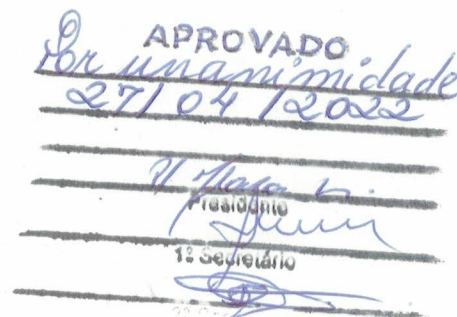 APROVADO
Por unanimidade
27/04/2022
Presidente
1º Secretário